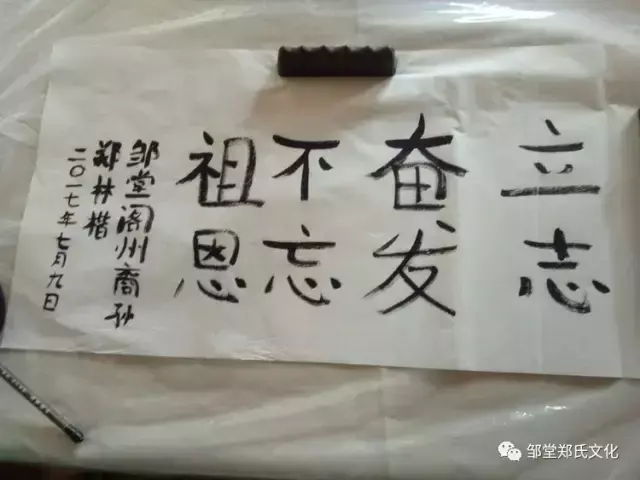 立志
奋发
不忘
祖恩
邹堂阁州裔孙
郑林楷
二〇一七年七月九日
邹堂郑氏文化